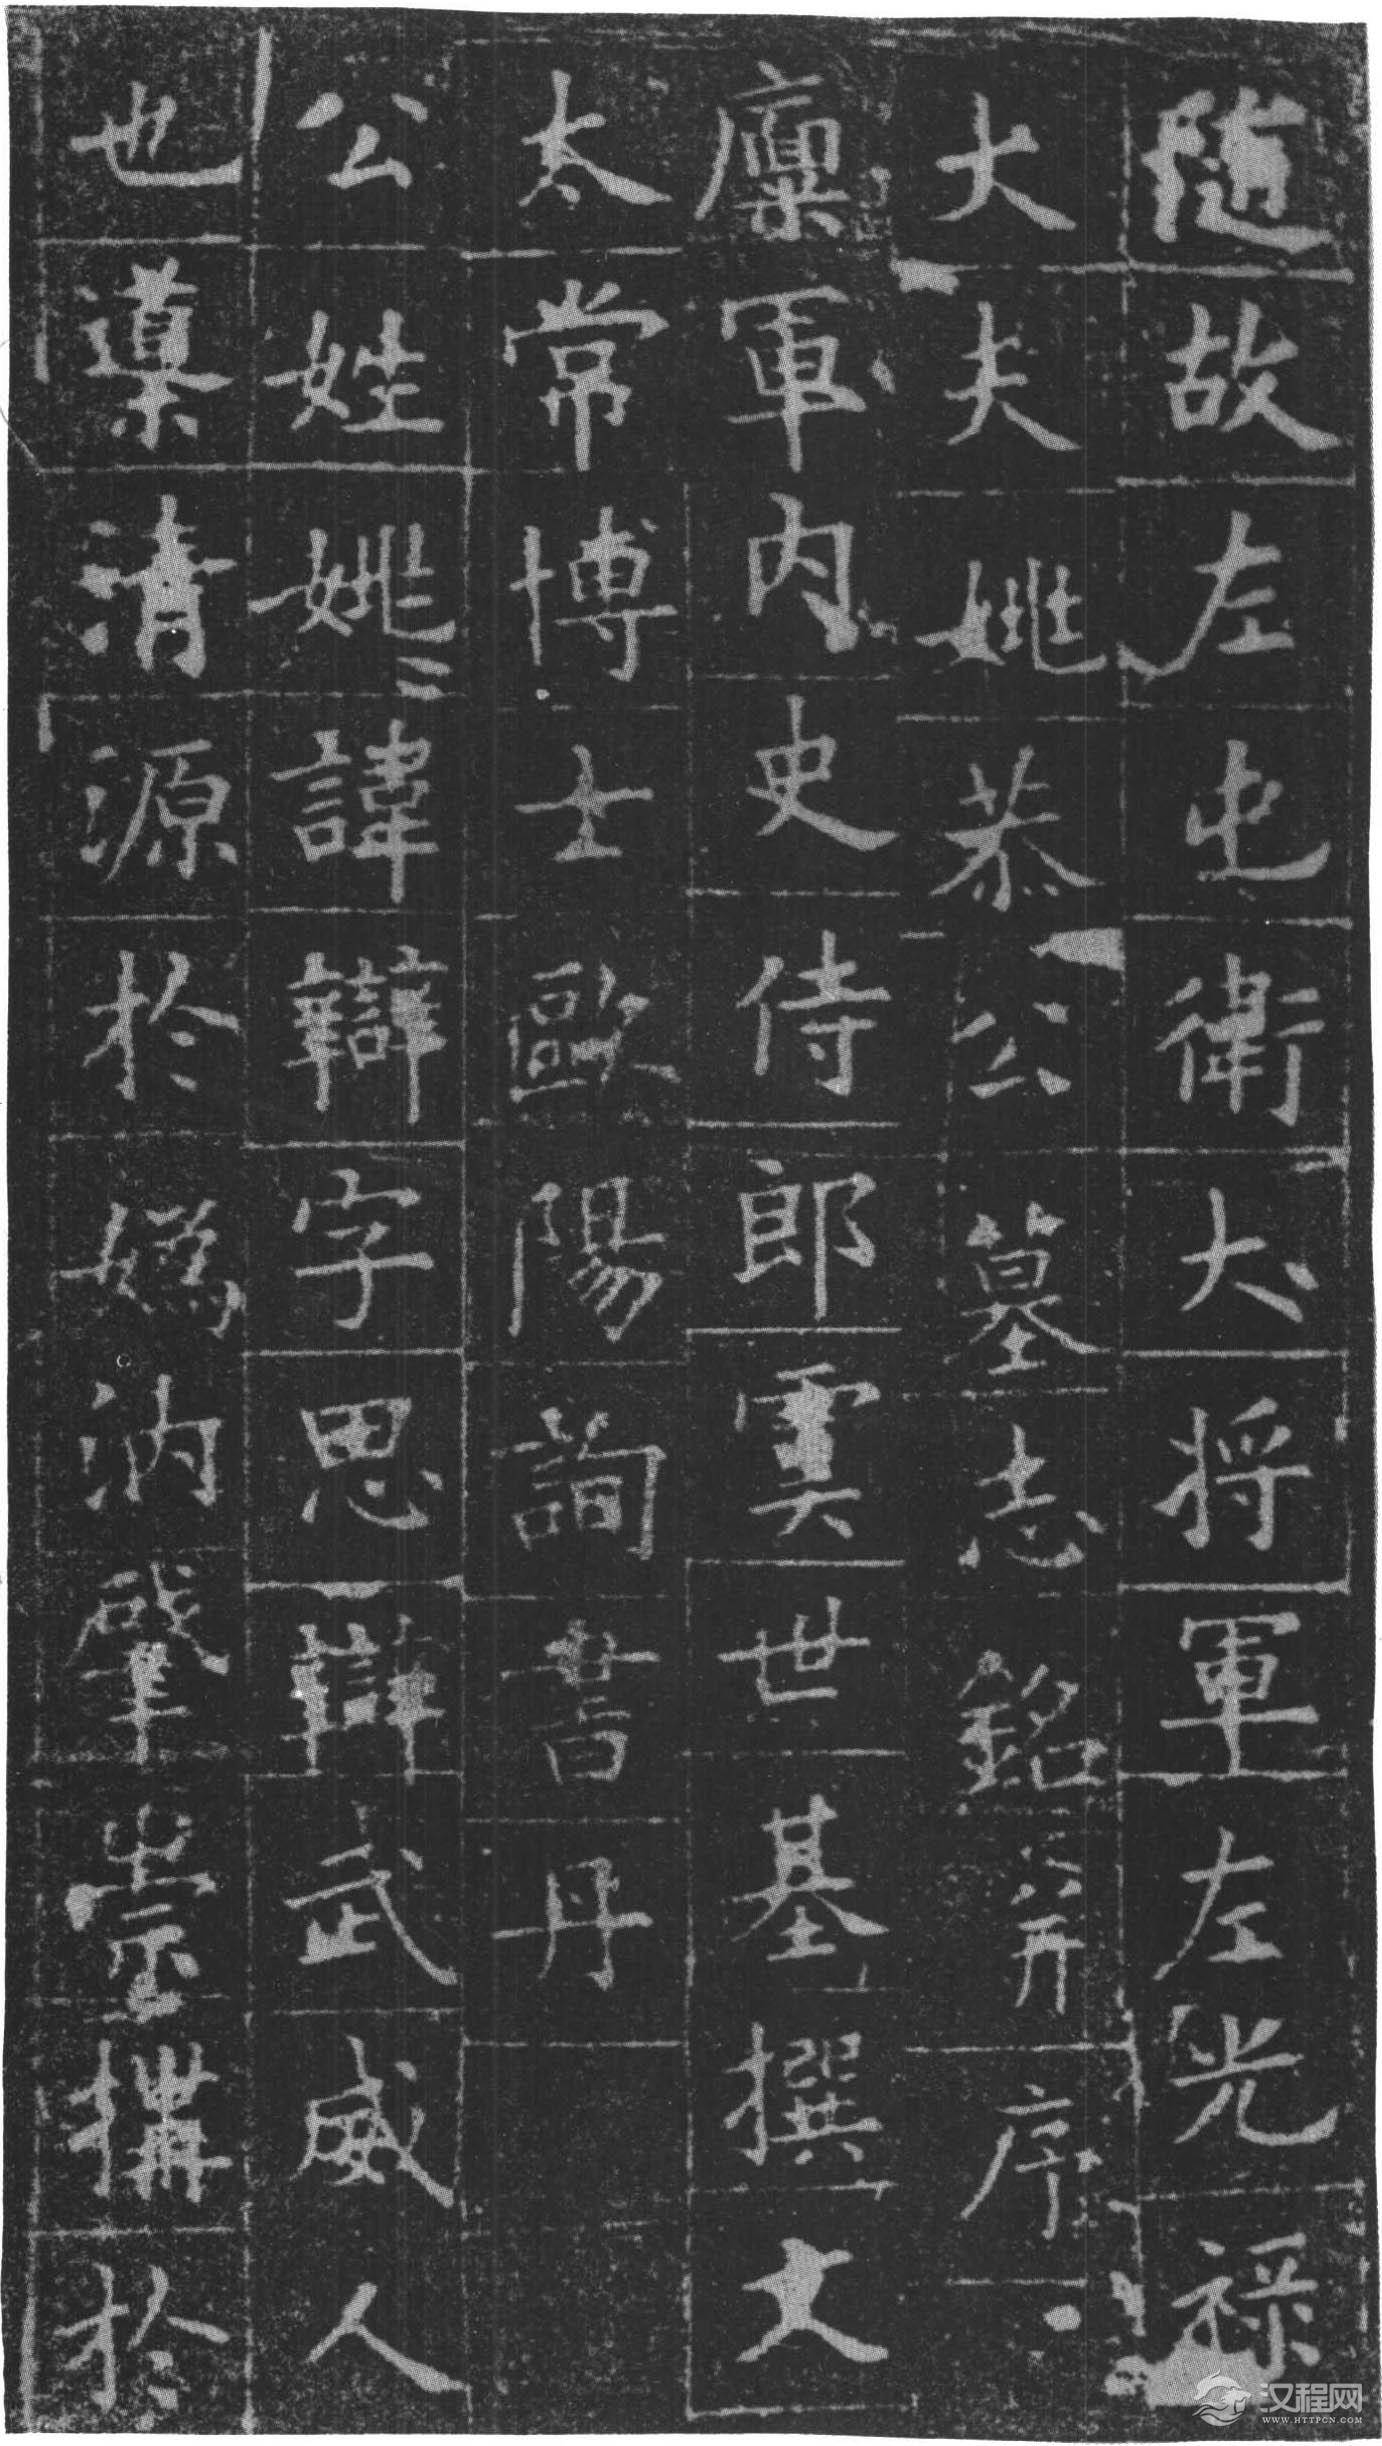 隨故左屯衛大將軍左光祿
大夫姚恭公墓志銘并序
內史侍郎虞世基撰文
太常博士歐陽詢書丹
公姓姚諱辯字思辯武威人
也導清源於媯汭肇崇搆於
汉程网
WWW.HTTPCN.COM